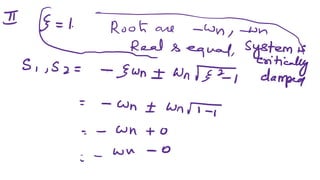 II ξ = 1. Roots are -ωn, -ωn
Real & equal, System is
critically
damped
S₁, S₂ = - ξωn ± ωn√ξ²-1
= - ωn ± ωn√1-1
= - ωn + 0
= - ωn - 0